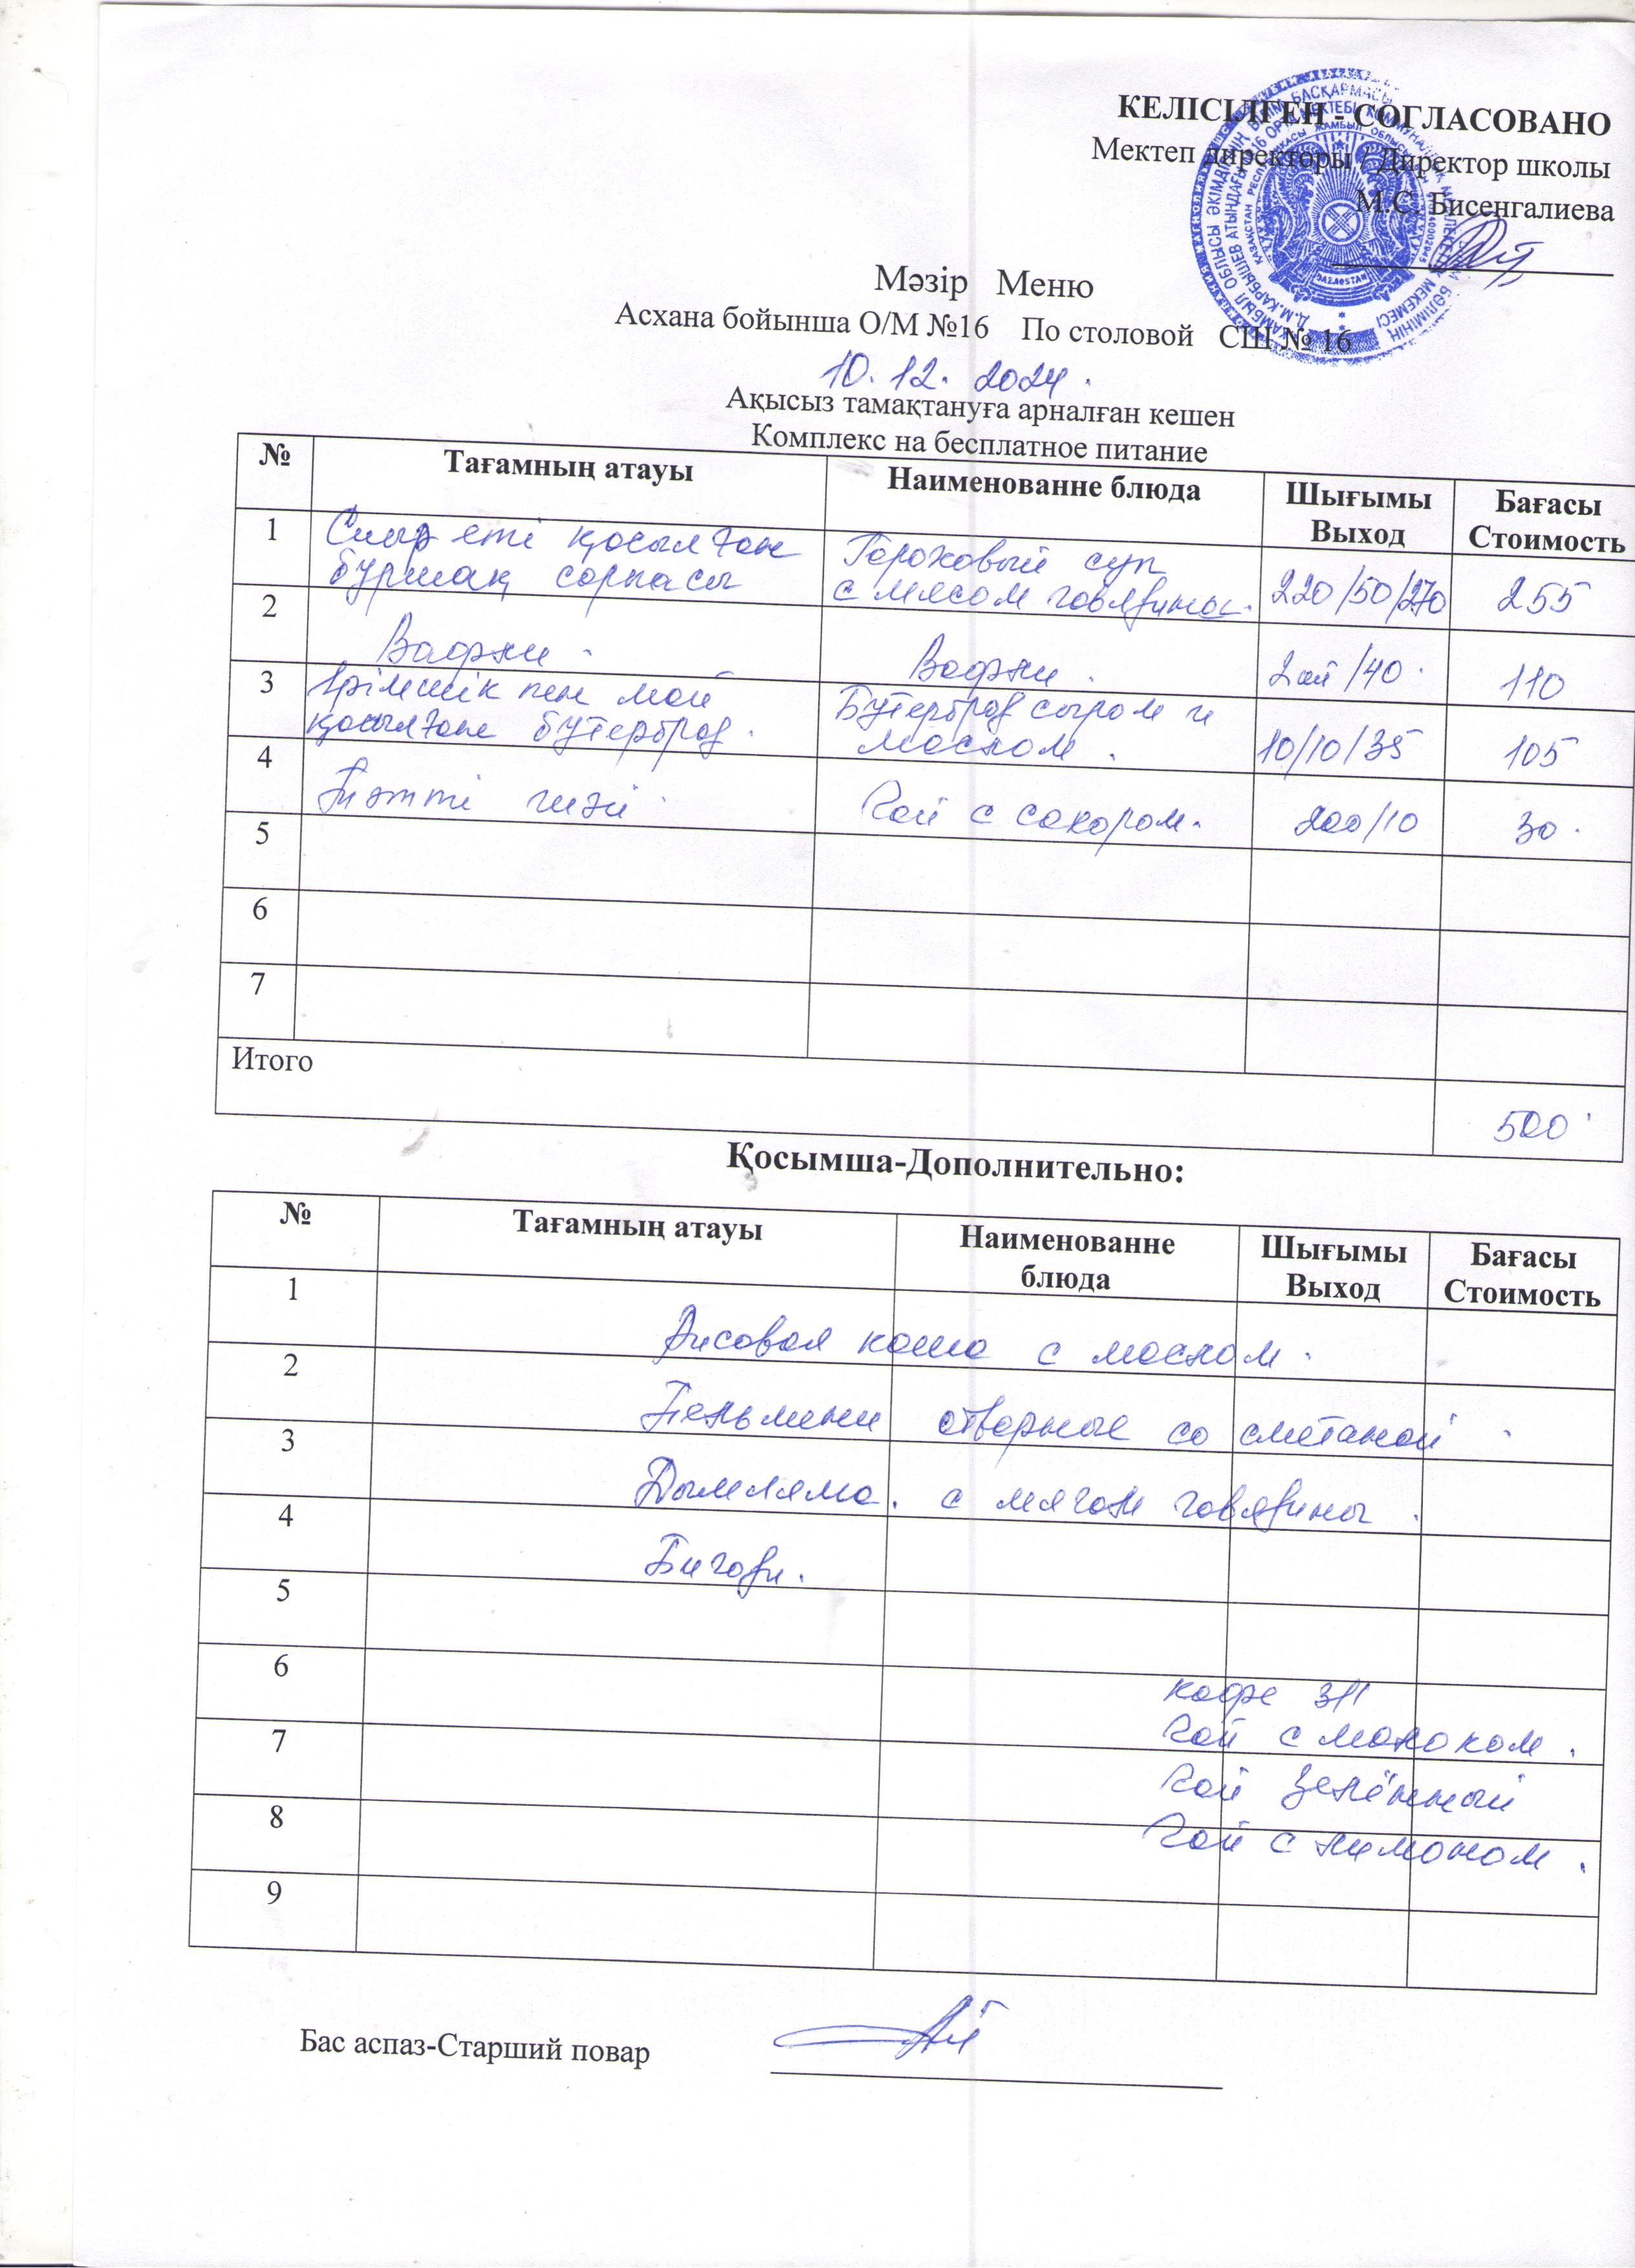 КЕЛІСІЛГЕН - СОГЛАСОВАНО
Мектеп директоры / Директор школы
М.С. Бисенгалиева
Мәзір Меню
Асхана бойынша О/М №16 По столовой СШ № 16
10.12.2024.
Ақысыз тамақтануға арналған кешен
Комплекс на бесплатное питание
№ Тағамның атауы Наименованне блюда Шығымы Выход Бағасы Стоимость
1 Сиыр еті қосылған бұршақ сорпасы Гороховый суп с мясом говядины. 220/50/270 255
2 Вафли. Вафли. 2 /40. 110
3 Ірімшік пен май қосылған бутерброд. Бутерброд сыром и маслом. 10/10/35 105
4 Тәтті шәй Чай с сахаром. 200/10 30.
5
6
7
Итого 500
Қосымша-Дополнительно:
№ Тағамның атауы Наименованне блюда Шығымы Выход Бағасы Стоимость
1 Рисовая каша с маслом.
2 Пельмени отварные со сметаной.
3 Дымляма. с мягом говядины.
4 Бигоди.
5
6 кофе 3/1
Чай с молоком.
7 Чай зелённый
8 Чай с лимоном.
9
Бас аспаз-Старший повар